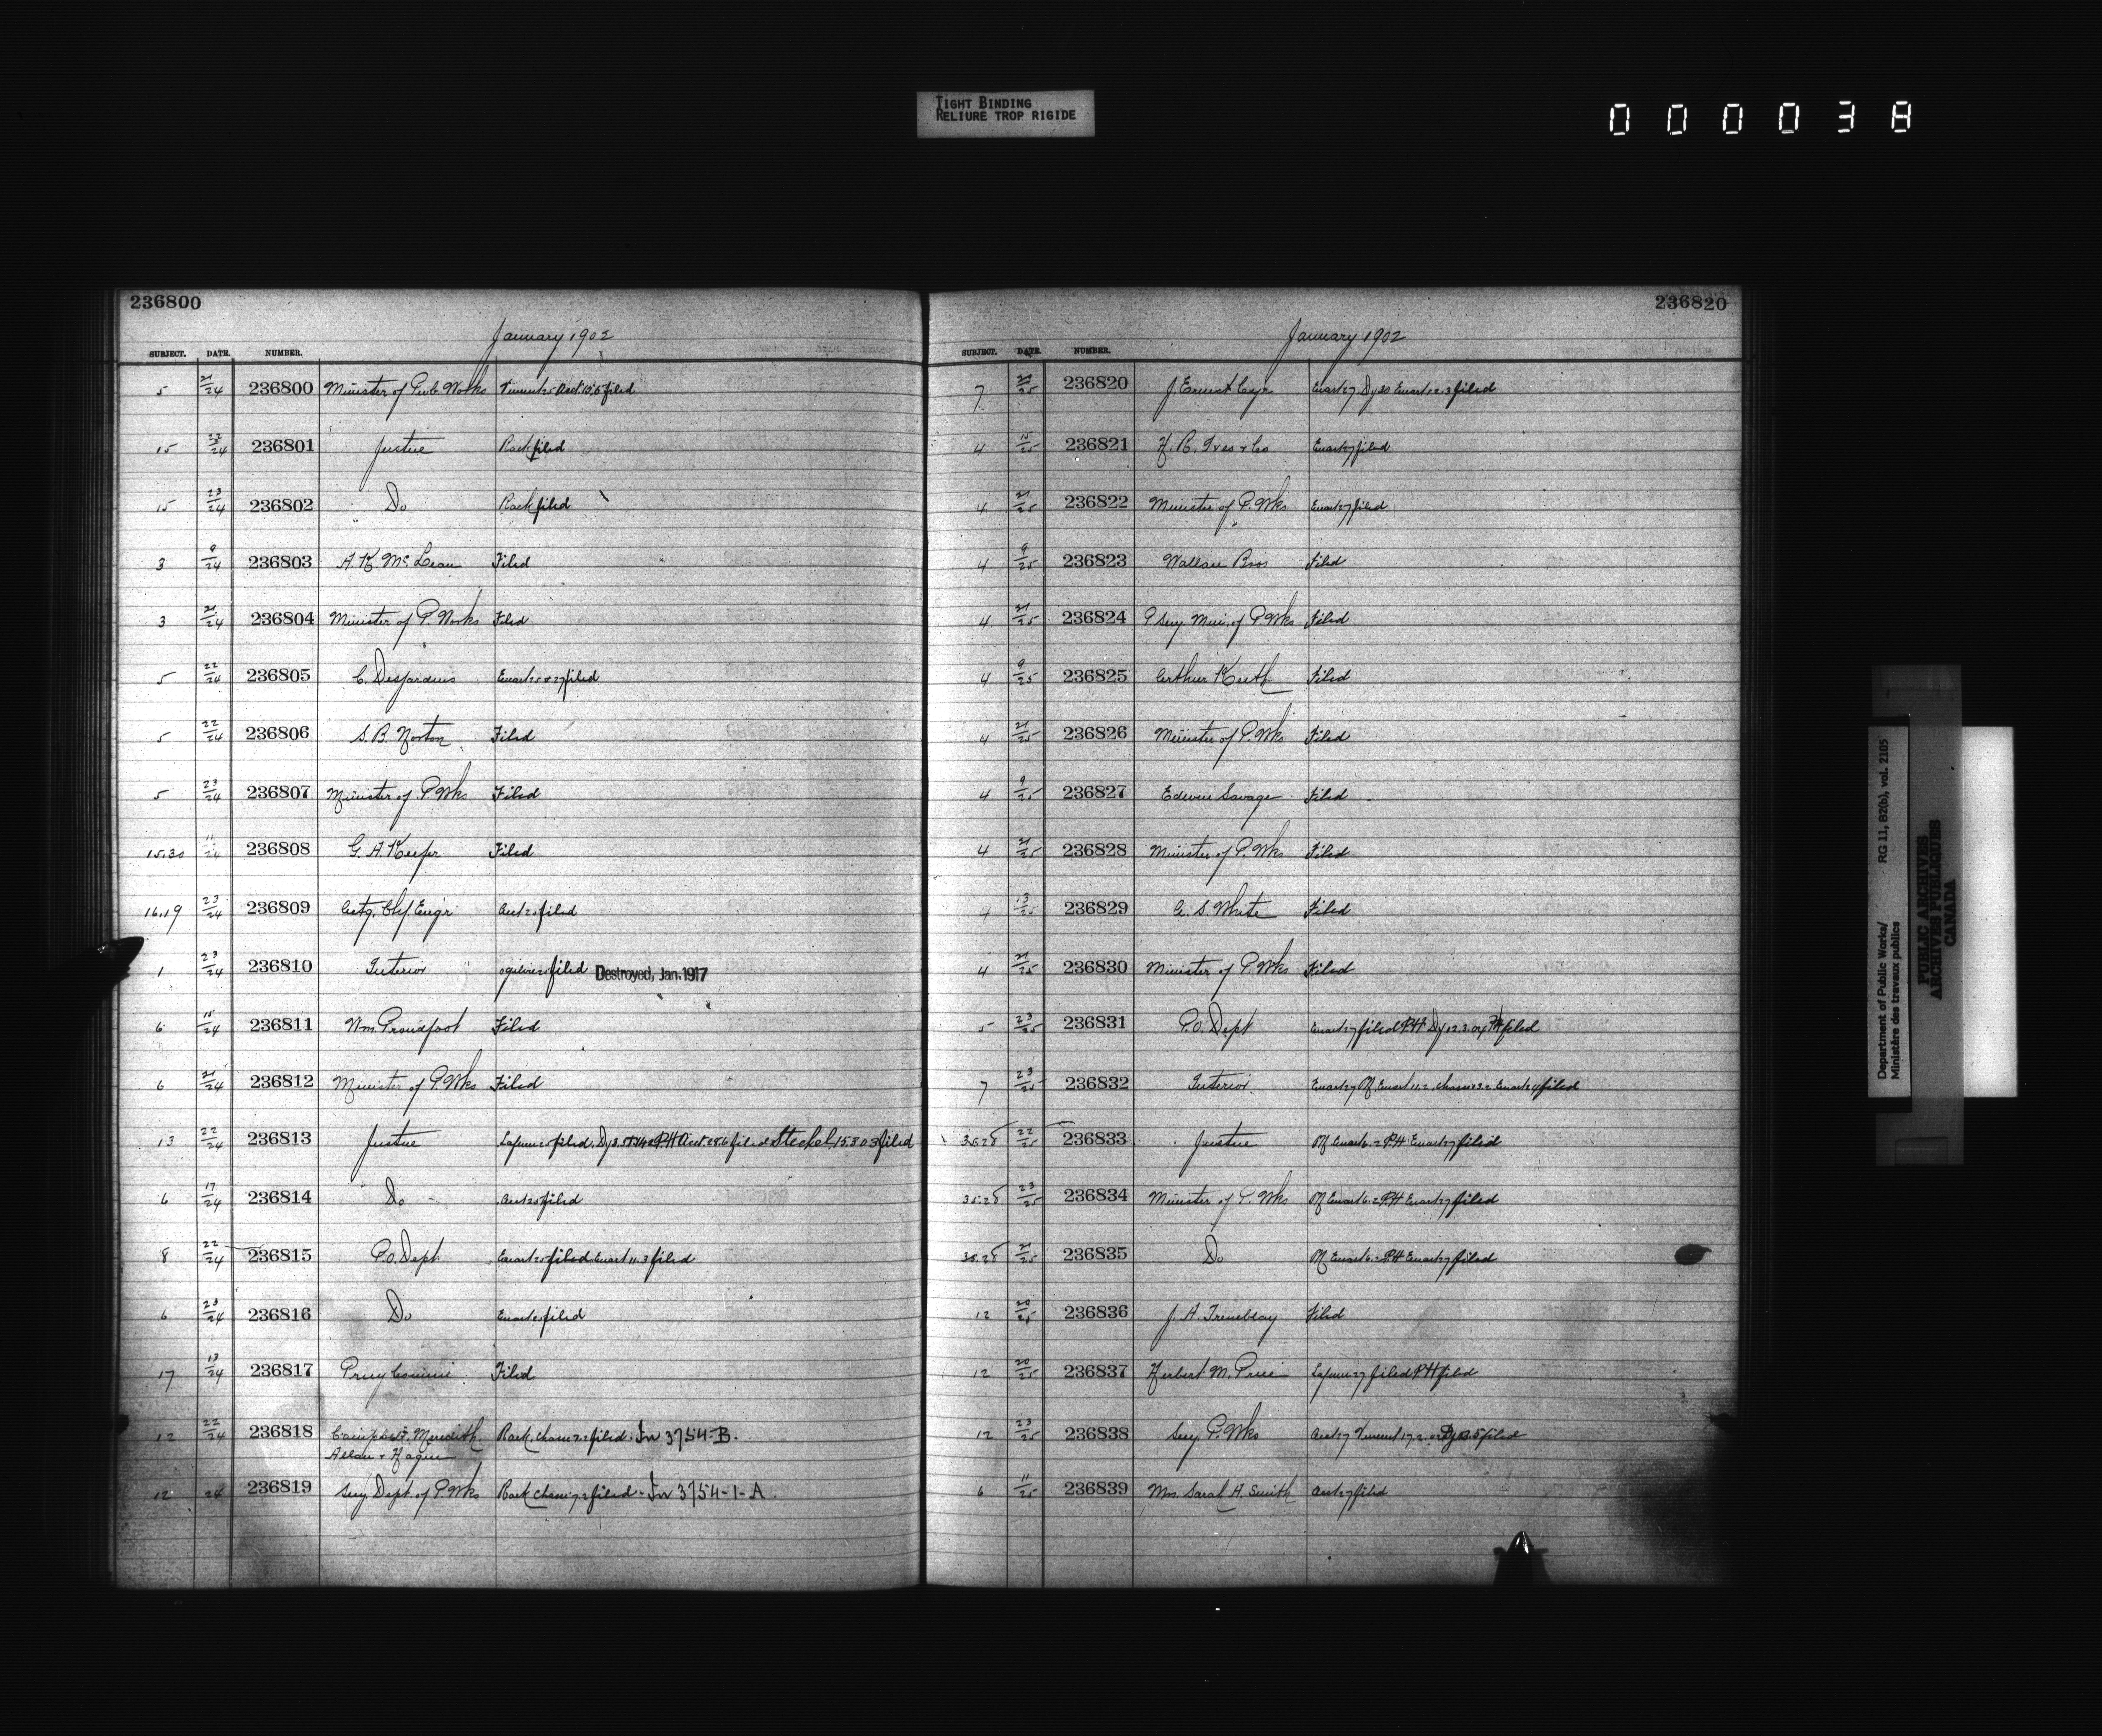 TIGHT BINDING
RELIURE TROP RIGIDE
000038
236800
January 1902
SUBJECT. DATE. NUMBER.
5 21/24 236800 Minister of Pub. Works filed
15 23/24 236801 Justice Rack filed
15 23/24 236802 Do Rack filed
3 9/24 236803 A. K. McLean Filed
3 21/24 236804 Minister of P. Works Filed
5 22/24 236805 C. Desjardins Ewart 25 & 27 filed
5 22/24 236806 S. B. Norton Filed
5 23/24 236807 Minister of P. Wks Filed
15.30 11/24 236808 G. A. Keefer Filed
16.19 23/24 236809 Actg. Chf. Engr filed
1 23/24 236810 Interior filed Destroyed, Jan. 1917
6 15/24 236811 Wm Proudfoot Filed
6 21/24 236812 Minister of P. Wks Filed
13 22/24 236813 Justice filed filed Steckel 15.3.03 filed
6 17/24 236814 Do filed
8 22/24 236815 P.O. Dept Ewart 25 filed Ewart 11.3 filed
6 23/24 236816 Do Ewart 25 filed
17 13/24 236817 Filed
12 22/24 236818 Campbell, Meredith, Rack filed. 3754-B.
Allan & Hague
12 24 236819 Secy Dept. of P. Wks Rack filed - 3754-1-A.
236820
January 1902
SUBJECT. DATE. NUMBER.
7 236820 J. Ernest Cyr Ewart 27 Dy 30 Ewart 12.3 filed
4 15/25 236821 H. R. Ives & Co Ewart 27 filed
4 21/25 236822 Minister of P. Wks Ewart 27 filed
4 9/25 236823 Wallace Bros Filed
4 21/25 236824 P. Secy Min. of P. Wks Filed
4 9/25 236825 Arthur Keith Filed
4 21/25 236826 Minister of P. Wks Filed
4 9/25 236827 Edwin Savage Filed
4 21/25 236828 Minister of P. Wks Filed
4 13/25 236829 C. S. White Filed
4 21/25 236830 Minister of P. Wks Filed
5 23/25 236831 P.O. Dept Ewart 27 filed PH filed
7 23/25 236832 Interior Ewart 27 Ewart 11.2 Ewart 24 filed
22/25 236833 Justice Ewart 6.2 PH Ewart 27 filed
23/25 236834 Minister of P. Wks Ewart 6.2 PH Ewart 27 filed
21/25 236835 Do Ewart 6.2 PH Ewart 27 filed
12 20/25 236836 J. A. Tremblay Filed
12 20/25 236837 Herbert M. Price filed PH filed
12 23/25 236838 Secy P. Wks filed
6 11/25 236839 Mrs. Sarah A. Smith filed
Department of Public Works/ RG 11, B2(b), vol. 2105
Ministère des travaux publics
PUBLIC ARCHIVES
ARCHIVES PUBLIQUES
CANADA